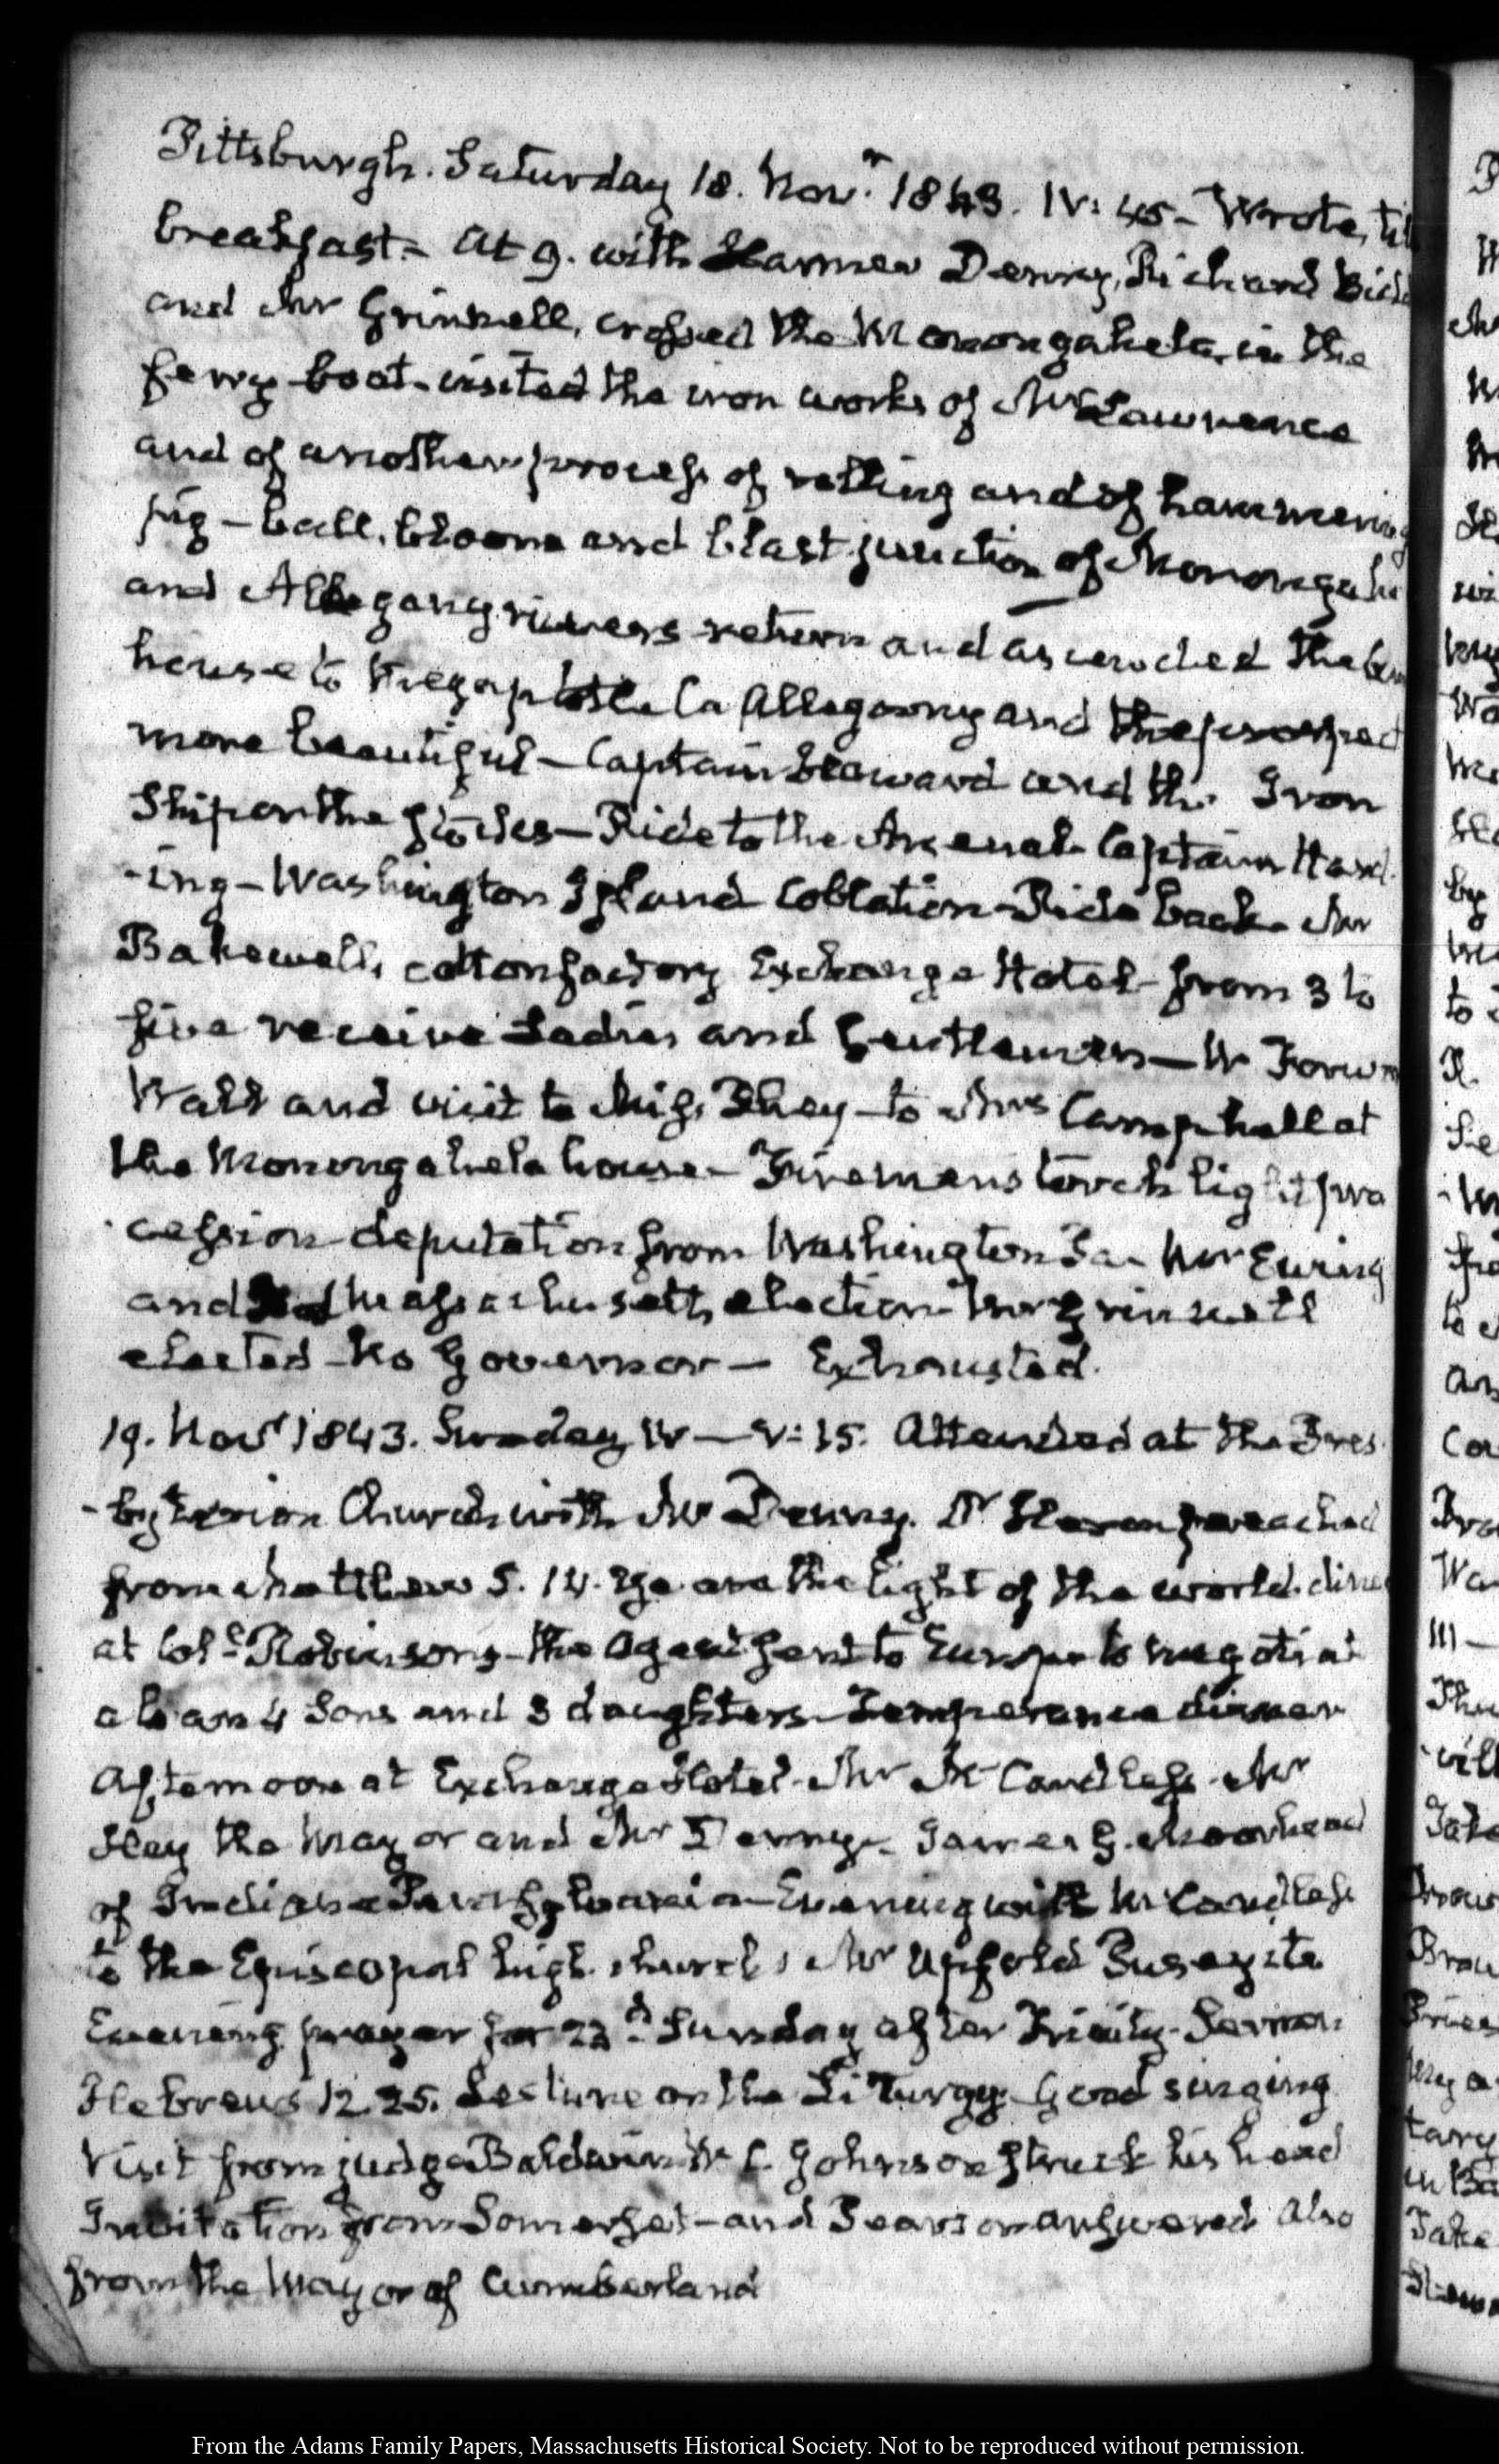 Pittsburgh. Saturday 18. Novr. 1843. IV: 45 - Wrote, till
breakfast - At 9. with Harmar Denny, Richard Bidd
and Mr Grinnell, crossed the Monongahela, in the
ferry-boat - visited the iron works of Mr Lawrence
and of another process of rolling and of hammering
pig - ball, bloom and blast junction of Monongahe
and Allegany rivers return and ascended the
house to la Allegany and the prospect
more beautiful - Captain and the Iron
Ship on the Stocks - Ride to the Arsenal - Captain Hard
-ing - Washington Island Collation - Ride back - Mr
Bakewell's cotton factory Exchange Hotel - from 3 to
five receive Ladies and Gentlemen - W Forw
Walk and visit to Miss - to Mrs Camphell at
the Monongahela house - Firemens torch light pro
-cession - deputation from Washington Pa - Mr Ewing
and Massachusetts election - Mr Grinnell
elected - No Governor - Exhausted.
19. Novr 1843. Sunday IV - V: 15. Attended at the Pres
-byterian Church with Mr Denny. Dr Heron preached
from Matthew 5. 14. Ye are the light of the world. dine
at Coll. Robinsons - the Agent sent to Europe to negotiat
a loan 4 Sons and 3 daughters - Temperance dinner
Afternoon at Exchange Hotel - Mr McCandless - Mr
Hay the Mayor and Mr Denny - James G. Moorhead
of Indiana Pennsylvania - Evening with McCandless
to the Episcopal high church, Mr Upfold Puseyite
Evening prayer for 23d Sunday after Trinity - Sermon
Hebrews 12. 25. Lecture on the Liturgy - Good singing
Visit from judge Baldwin W C. Johnson struck his head
Invitation from Somerset - and Pearson answered also
from the Mayor of Cumberland
From the Adams Family Papers, Massachusetts Historical Society. Not to be reproduced without permission.